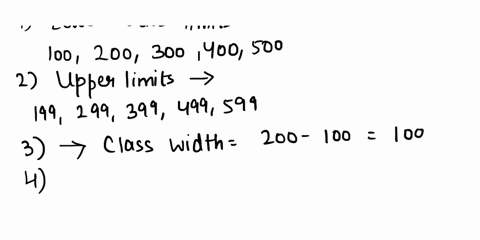 100, 200, 300, 400, 500
2) Upper limits →
199, 299, 399, 499, 599
3) → Class width = 200 - 100 = 100
4)